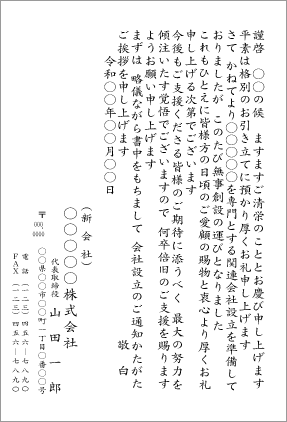 謹啓　〇〇の候　ますますご清栄のこととお慶び申し上げます
平素は格別のお引き立てに預かり厚くお礼申し上げます
さて　かねてより〇〇〇〇を専門とする関連会社設立を準備して
おりましたが　このたび無事創設の運びとなりました
これもひとえに皆様方の日頃のご愛顧の賜物と衷心より厚くお礼
申し上げる次第でございます
今後もご支援くださる皆様のご期待に添うべく　最大の努力を
傾注いたす覚悟でございますので　何卒倍旧のご支援を賜ります
ようお願い申し上げます
まずは　略儀ながら書中をもちまして　会社設立のご通知かたがた
ご挨拶を申し上げます　敬白
令和〇〇年〇〇月〇〇日
（新会社）
〇〇〇〇株式会社
代表取締役　山田一郎
〒000-0000
〇〇県〇〇市〇〇町一丁目〇番〇〇号
電話　（一二三）四五六―七八九〇
FAX　（一二三）四五六―七八九〇